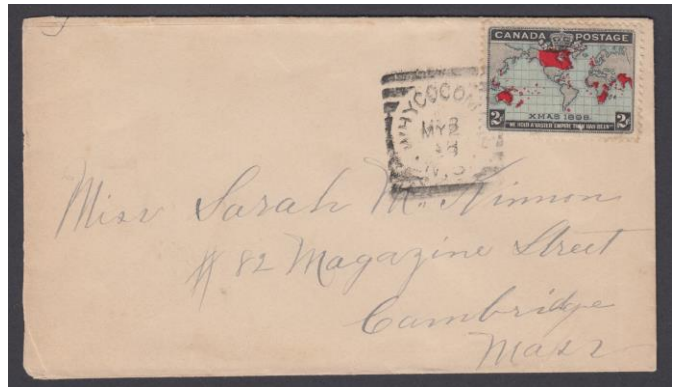 CANADA POSTAGE
XMAS 1898
2c 2c
"WE HOLD A VASTER EMPIRE THAN HAS BEEN"
WHYCOCOM
MY 2
N.S.
Miss Sarah McKinnon
# 82 Magazine Street
Cambridge
Mass